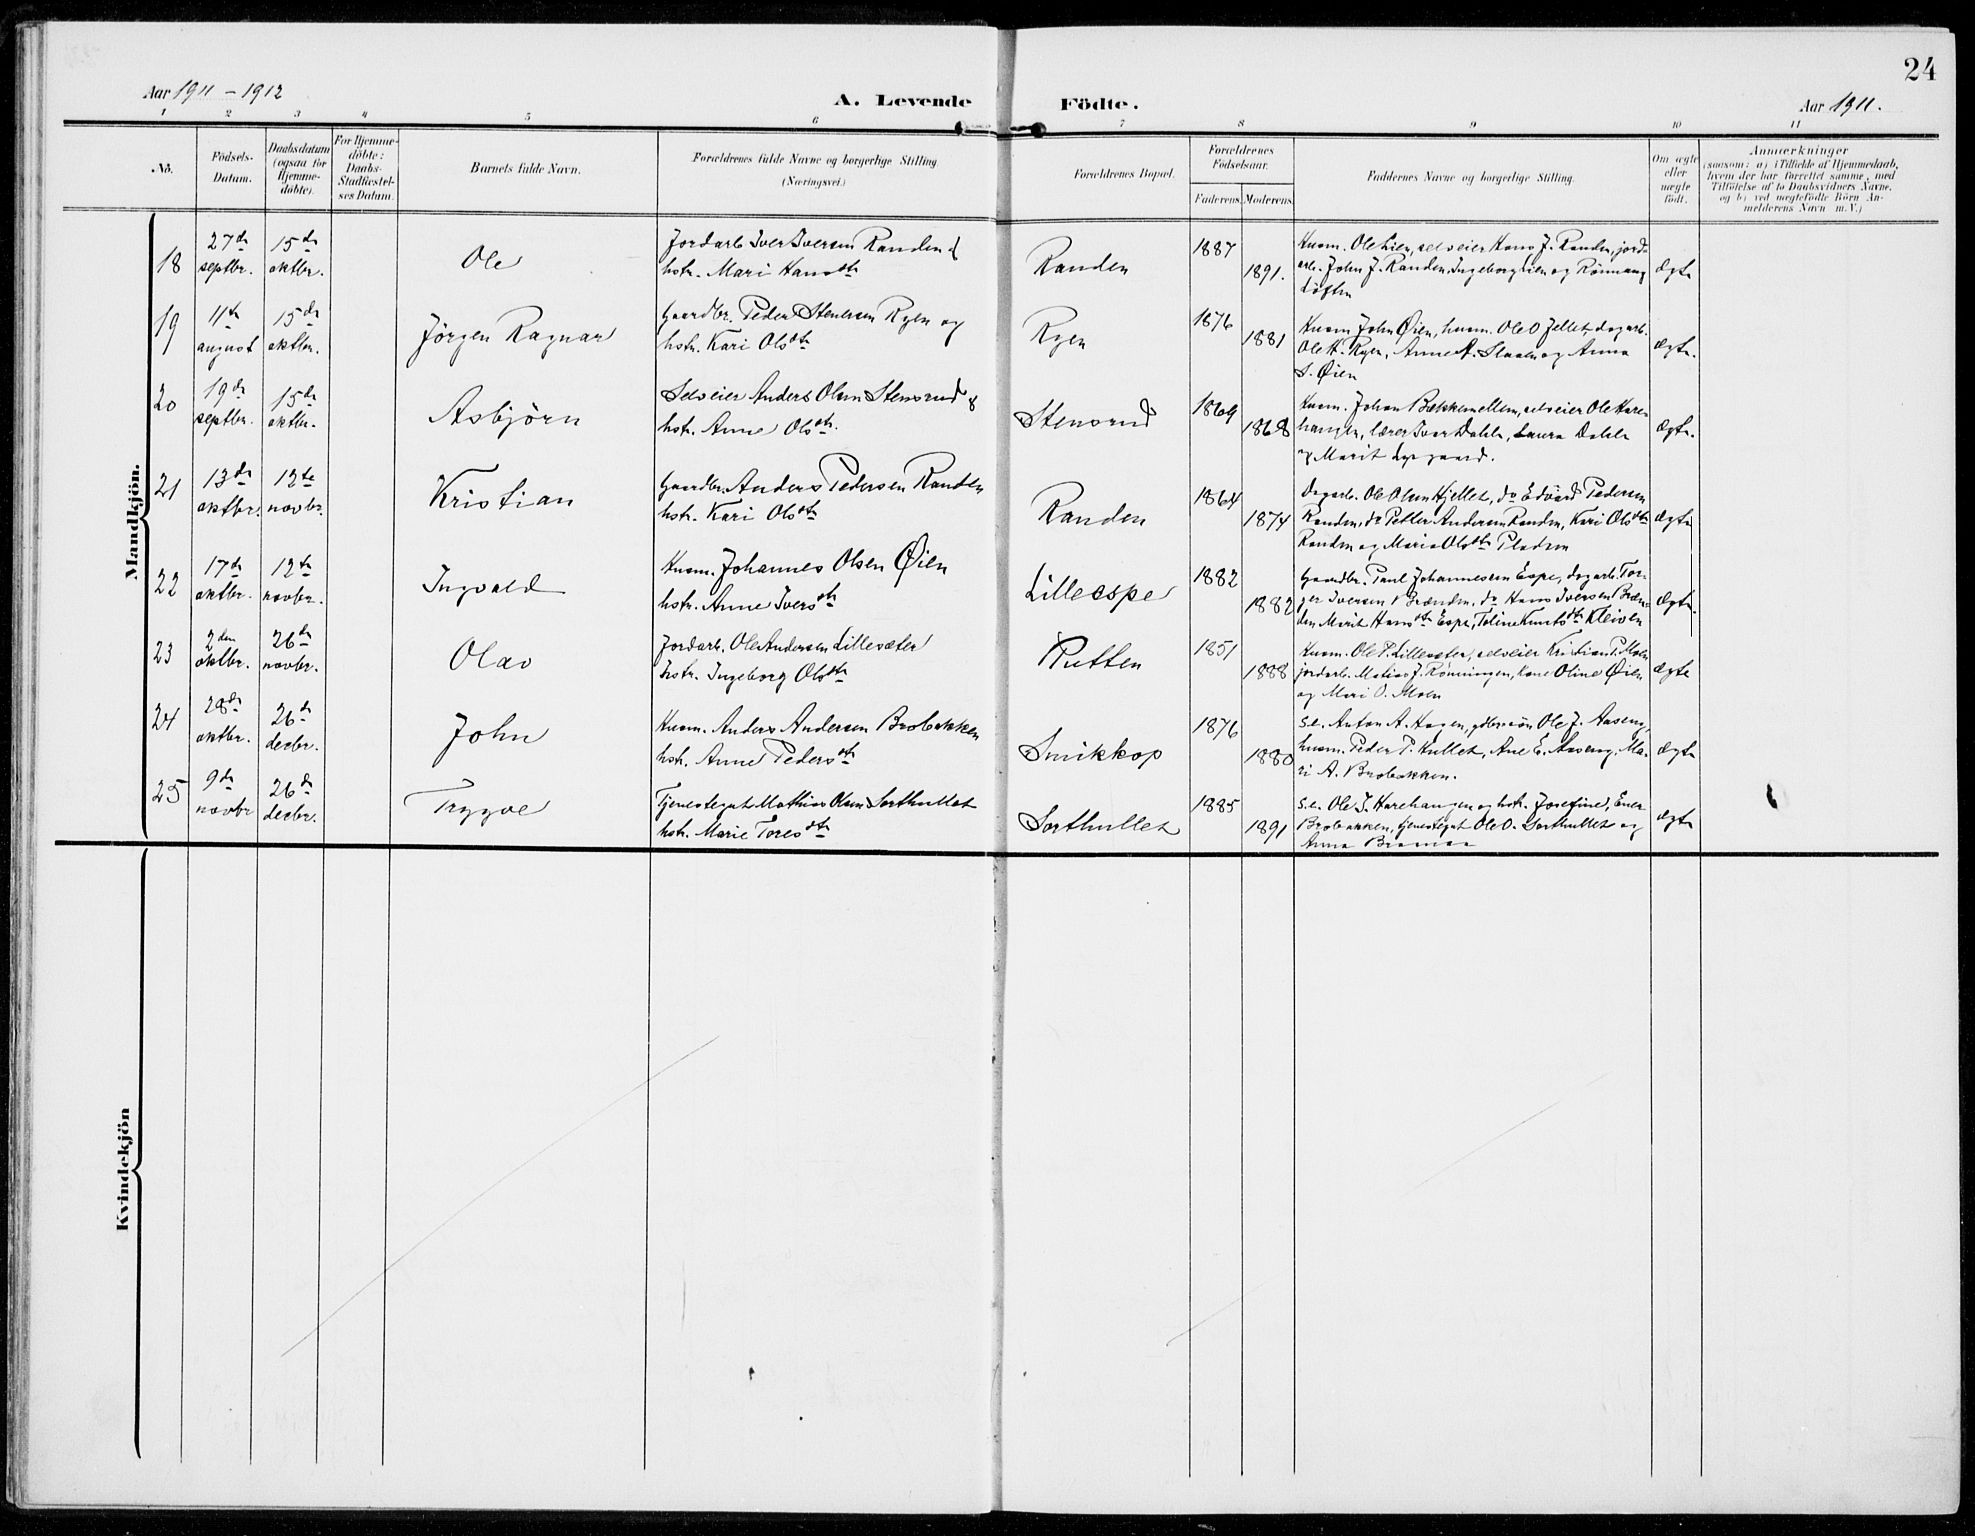 24
Aar 1911 – 1912
A. Levende Födte.
Aar 1911.
1 2 3 4 5 6 7 8 9 10 11
No.
Födsels-
Datum.
Daabsdatum
(ogsaa for
Hjemme-
döbte).
For Hjemme-
döbte:
Daabs-
Stadfæstel-
ses Datum.
Barnets fulde Navn.
Forældrenes fulde Navne og borgerlige Stilling
(Næringsvei.)
Forældrenes Bopæl.
Forældrenes
Födselsaar.
Faderens. Moderens.
Faddernes Navne og borgerlige Stilling.
Om ægte
eller
uægte
födt.
Anmærkninger
(saasom: a) i Tilfælde af Hjemmedaab,
hvem der har forrettet samme, med
Tilföielse af to Daabsvidners Navne,
og b) ved uægtefödte Börn An-
melderens Navn m. V.)
Mandkjön.
18
27de
septbr.
15de
oktbr.
Ole
Jordarb. Iver Iversen Randen &
hstr. Mari Hansdtr
Randen
1887
1891.
Husm. Ole Lien, selveier Hans J. Randen, jord-
arb. John J. Randen, Ingeborg Lien og Rönnaug
Löften
ægte
19
11te
august
15de
oktbr.
Jörgen Ragnar
Gaardbr. Peder Stenersen Ryen og
hstr. Kari Olsdtr
Ryen
1876
1881
Husm John Øien, husm. Ole O Jellet, dagarb.
Ole H. Ryen, Anne A. Slaaen og Anna
S. Øien
ægte.
20
19de
septbr.
15de
oktbr.
Asbjörn
Selveier Anders Olsen Stensrud &
hstr. Anne Olsdtr.
Stensrud
1869
1868
Husm. Johan Bækkemellem, selveier Ole Hare-
haugen, lærer Iver Dahle, Laura Dahle
og Marit Lygaard.
ægte.
21
13de
oktbr.
12te
novbr.
Kristian
Gaardbr. Anders Pedersen Randen
hstr. Kari Olsdtr
Randen
1864
1874
Dagarb. Ole Olsen Hjellet, do Edvard Pedersen
Randen, do Petter Andersen Randen, Kari Olsdtr
Randen og Maria Olsdtr Pladsen
ægte
22
17de
oktbr.
12te
novbr.
Ingvald
Husm. Johannes Olsen Øien
hstr. Anne Iversdtr
Lilleespe
1882
1882
Gaardbr. Paul Johannesen Espe, dagarb. Tor-
ger Iversen Brænden, do Hans Iversen Bræn-
den Marit Hansdtr Espe, Toline Knutsdtr Kleiven
ægte.
23
2den
oktbr.
26de
novbr.
Olav
Jordarb. Ole Andersen Lillesæter
hstr. Ingeborg Olsdtr
Rutten
1851
1888
Husm. Ole P. Lillesæter, selveier Kristian P. Moen
jordarb. Matias J. Rönningen, kone Oline Øien
og Mari O. Moen
ægte
24
28de
oktbr.
26de
decbr.
John
Husm. Anders Andersen Brobakken
hstr. Anne Pedersdtr
Smikkop
1876
1880
s.e. Anton A. Hagen, gdbr.sön Ole J. Aaseng,
husm. Peder P. Hullet, Ane E. Aaseng, Ma-
ri A. Brobakken.
ægte
25
9de
novbr
26de
decbr.
Trygve
Tjenestegut Mathias Olsen Sorthullet
hstr. Marie Toresdtr
Sorthullet
1885
1891
s.e. Ole J. Harehaugen og hstr. Josefine, Ener
Brobakken, tjenestegut Ole O. Sorthullet og
Anna
ægte
Kvindekjön